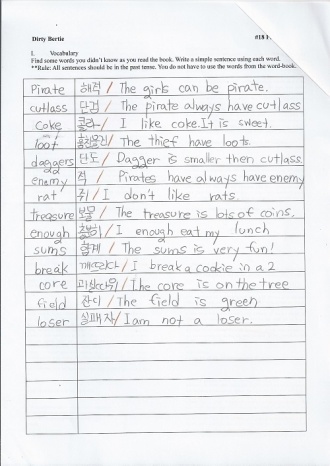 Dirty Bertie
#18
I. Vocabulary
Find some words you didn't know as you read the book. Write a simple sentence using each word.
**Rule: All sentences should be in the past tense. You do not have to use the words from the word-book.
Pirate 해적 / The girls can be pirate.
cutlass 단검 / The pirate always have cutlass
coke 콜라 / I like coke. It is sweet.
loot 훔친물건 / The thief have loots.
daggers 단도 / Dagger is smaller then cutlass.
enemy 적 / Pirates have always have enemy
rat 쥐 / I don't like rats.
treasure 보물 / The treasure is lots of coins.
enough 충분히 / I enough eat my lunch
sums 합계 / The sums is very fun!
break 깨뜨리다 / I break a cookie in a 2
core / The core is on the tree
field 잔디 / The field is green
loser 실패자 / I am not a loser.